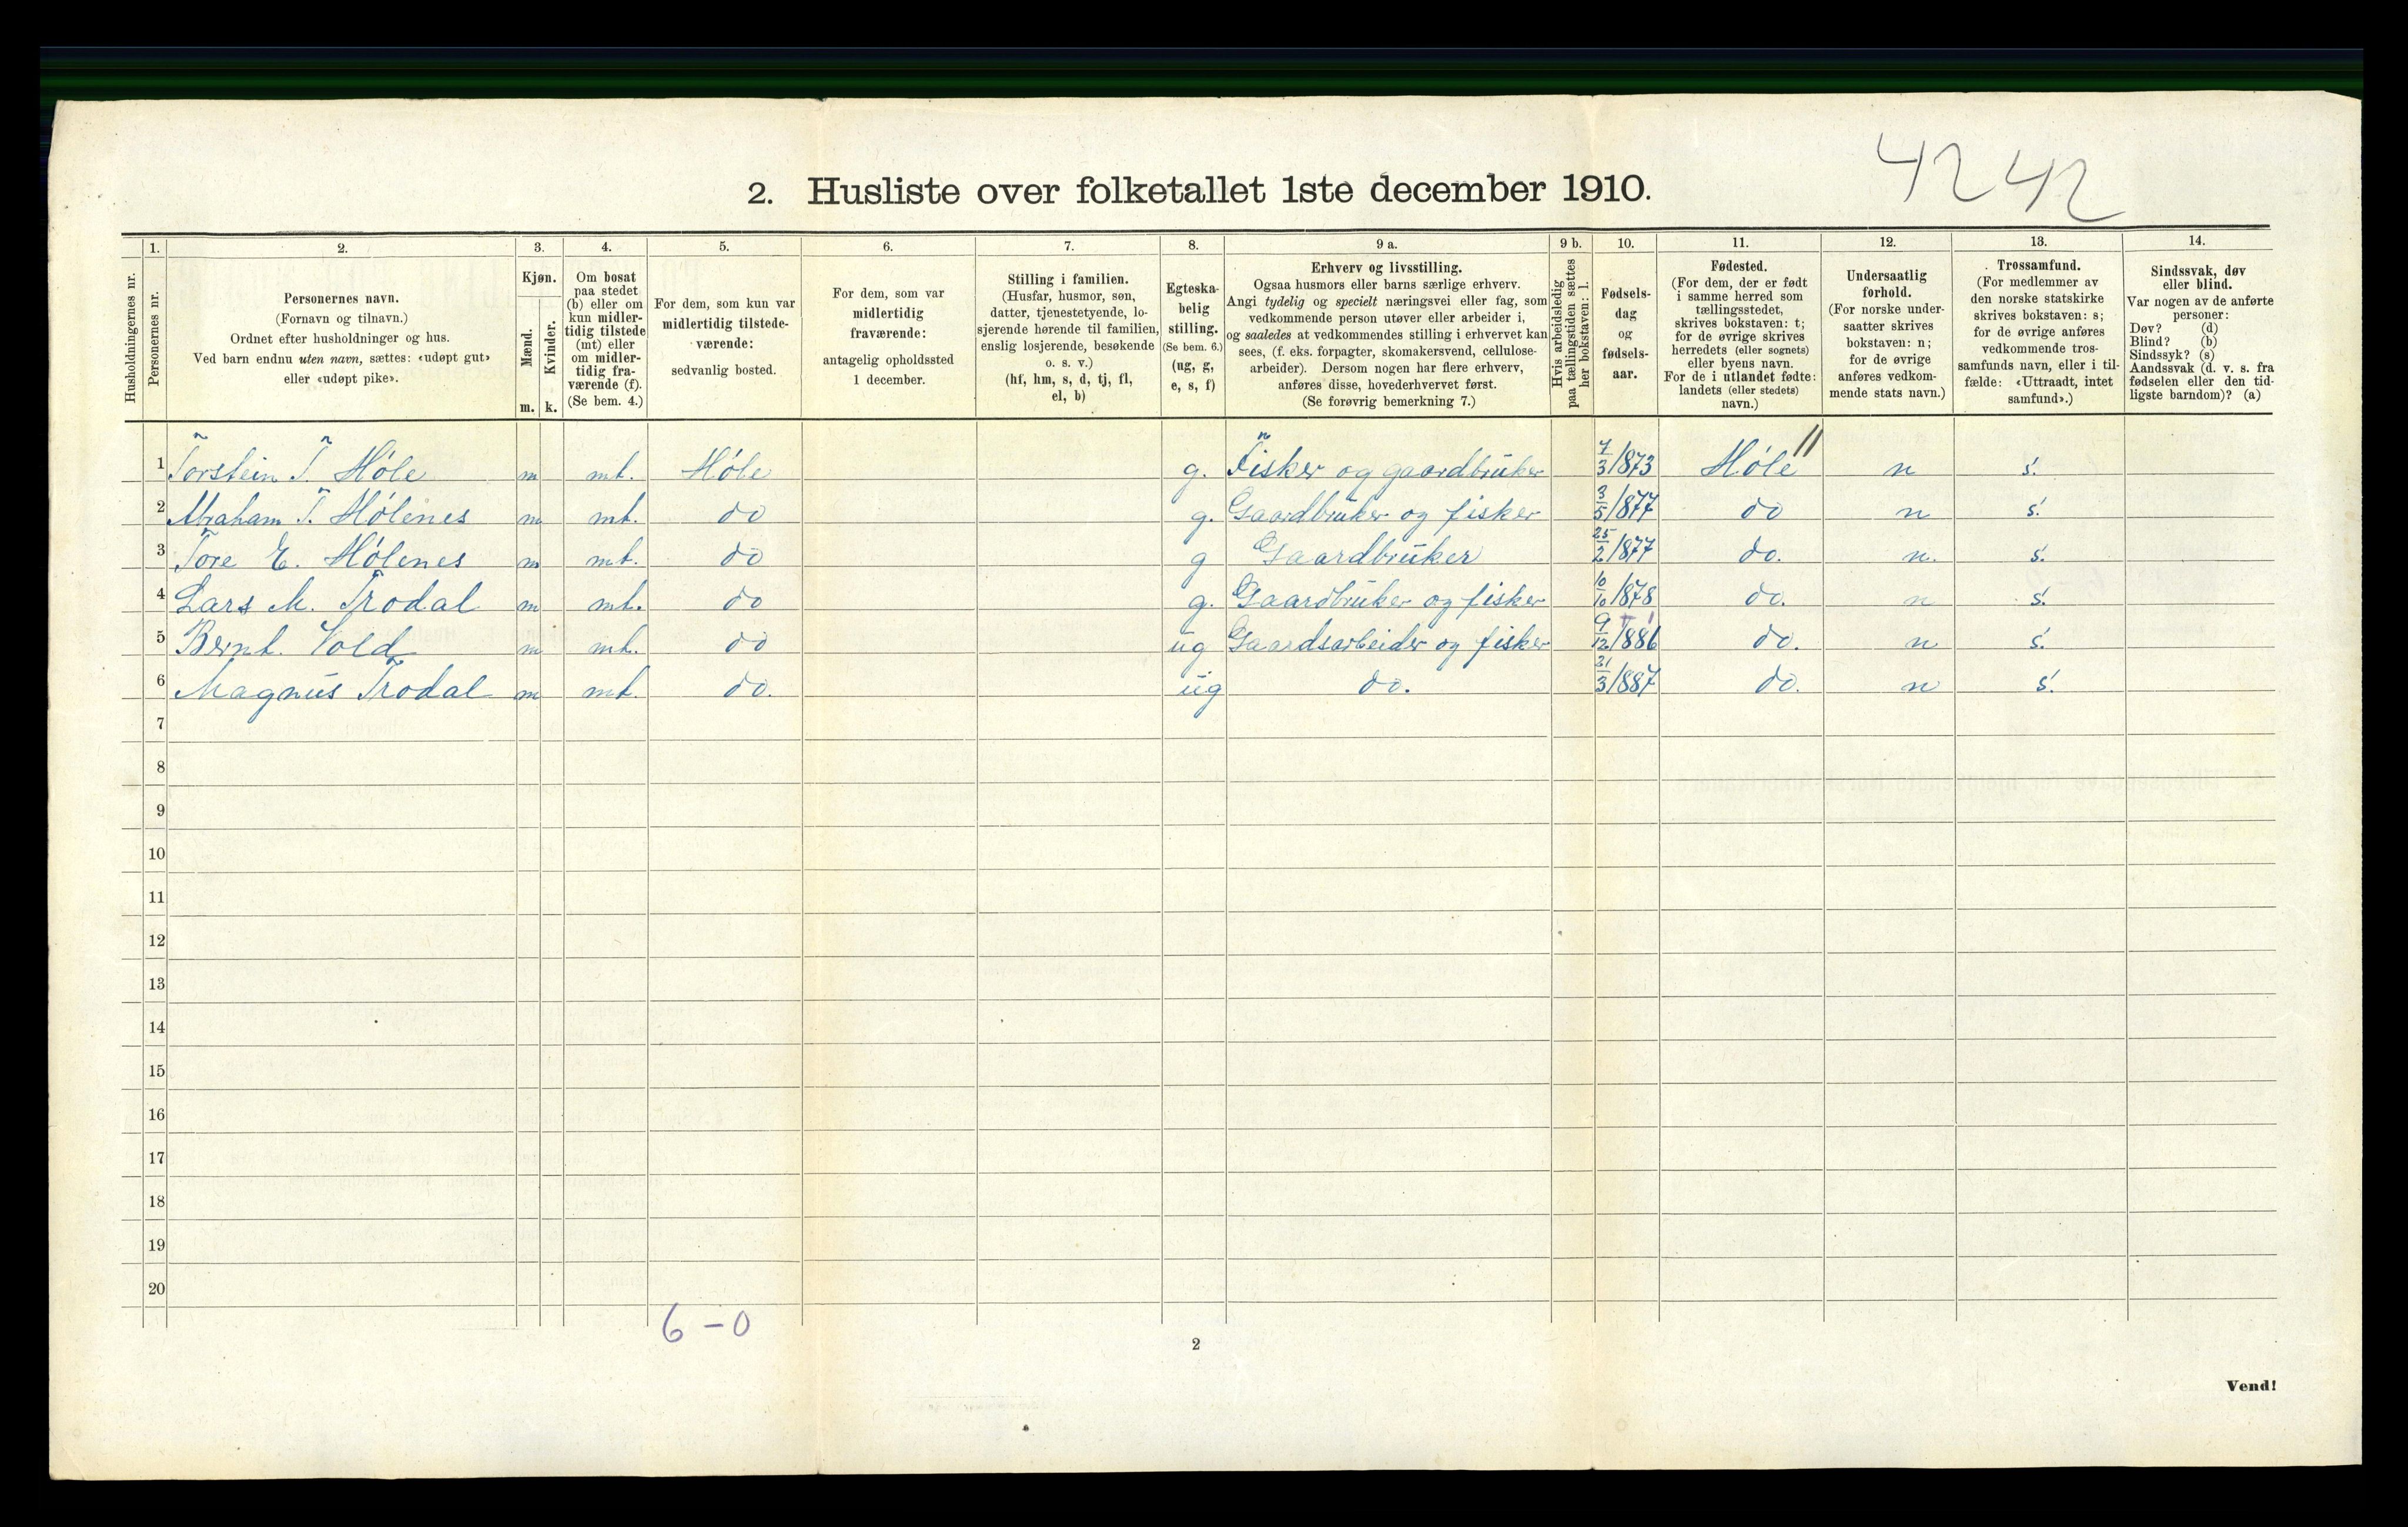 42 42
2. Husliste over folketallet 1ste december 1910.
Husholdningernes nr.
1.
Personernes nr.
2.
Personernes navn.
(Fornavn og tilnavn.)
Ordnet efter husholdninger og hus.
Ved barn endnu uten navn, sættes: «udøpt gut»
eller «udøpt pike».
3.
Kjøn.
Mænd.
Kvinder.
m. k.
4.
Om bosat
paa stedet
(b) eller om
kun midler-
tidig tilstede
(mt) eller
om midler-
tidig fra-
værende (f).
(Se bem. 4.)
5.
For dem, som kun var
midlertidig tilstede-
værende:
sedvanlig bosted.
6.
For dem, som var
midlertidig
fraværende:
antagelig opholdssted
1 december.
7.
Stilling i familien.
(Husfar, husmor, søn,
datter, tjenestetyende, lo-
sjerende hørende til familien,
enslig losjerende, besøkende
o. s. v.)
(hf, hm, s, d, tj, fl,
el, b)
8.
Egteska-
belig
stilling.
(Se bem. 6.)
(ug, g,
e, s, f)
9 a.
Erhverv og livsstilling.
Ogsaa husmors eller barns særlige erhverv.
Angi tydelig og specielt næringsvei eller fag, som
vedkommende person utøver eller arbeider i,
og saaledes at vedkommendes stilling i erhvervet kan
sees, (f. eks. forpagter, skomakersvend, cellulose-
arbeider). Dersom nogen har flere erhverv,
anføres disse, hovederhvervet først.
(Se forøvrig bemerkning 7.)
9 b.
Hvis arbeidsledig
paa tællingstiden sættes
her bokstaven: l.
10.
Fødsels-
dag
og
fødsels-
aar.
11.
Fødested.
(For dem, der er født
i samme herred som
tællingsstedet,
skrives bokstaven: t;
for de øvrige skrives
herredets (eller sognets)
eller byens navn.
For de i utlandet fødte:
landets (eller stedets)
navn.)
12.
Undersaatlig
forhold.
(For norske under-
saatter skrives
bokstaven: n;
for de øvrige
anføres vedkom-
mende stats navn.)
13.
Trossamfund.
(For medlemmer av
den norske statskirke
skrives bokstaven: s;
for de øvrige anføres
vedkommende tros-
samfunds navn, eller i til-
fælde: «Uttraadt, intet
samfund».)
14.
Sindssvak, døv
eller blind.
Var nogen av de anførte
personer:
Døv? (d)
Blind? (b)
Sindssyk? (s)
Aandssvak (d. v. s. fra
fødselen eller den tid-
ligste barndom)? (a)
1 Torstein T. Hóle m mt. Hóle g. Fisker og gaardbruker 7/3/1873 Hóle 11 n s.
2 Abraham T. Hólenes m mt. do g. Gaardbruker og fisker 3/5/1877 do n s.
3 Tore E. Hólenes m mt. do g Gaardbruker 25/2/1877 do. n. s.
4 Lars M. Trodal m mt. do g. Gaardbruker og fisker 10/10/1878 do. n s.
5 Bernt. Vold m mt. do ug Gaardsarbeider og fisker 9/12/1886 do. n s.
6 Magnus Trodal m mt. do. ug do. 21/3/1887 do. n s.
7
8
9
10
11
12
13
14
15
16
17
18
19
20
6 - 0
2
Vend!